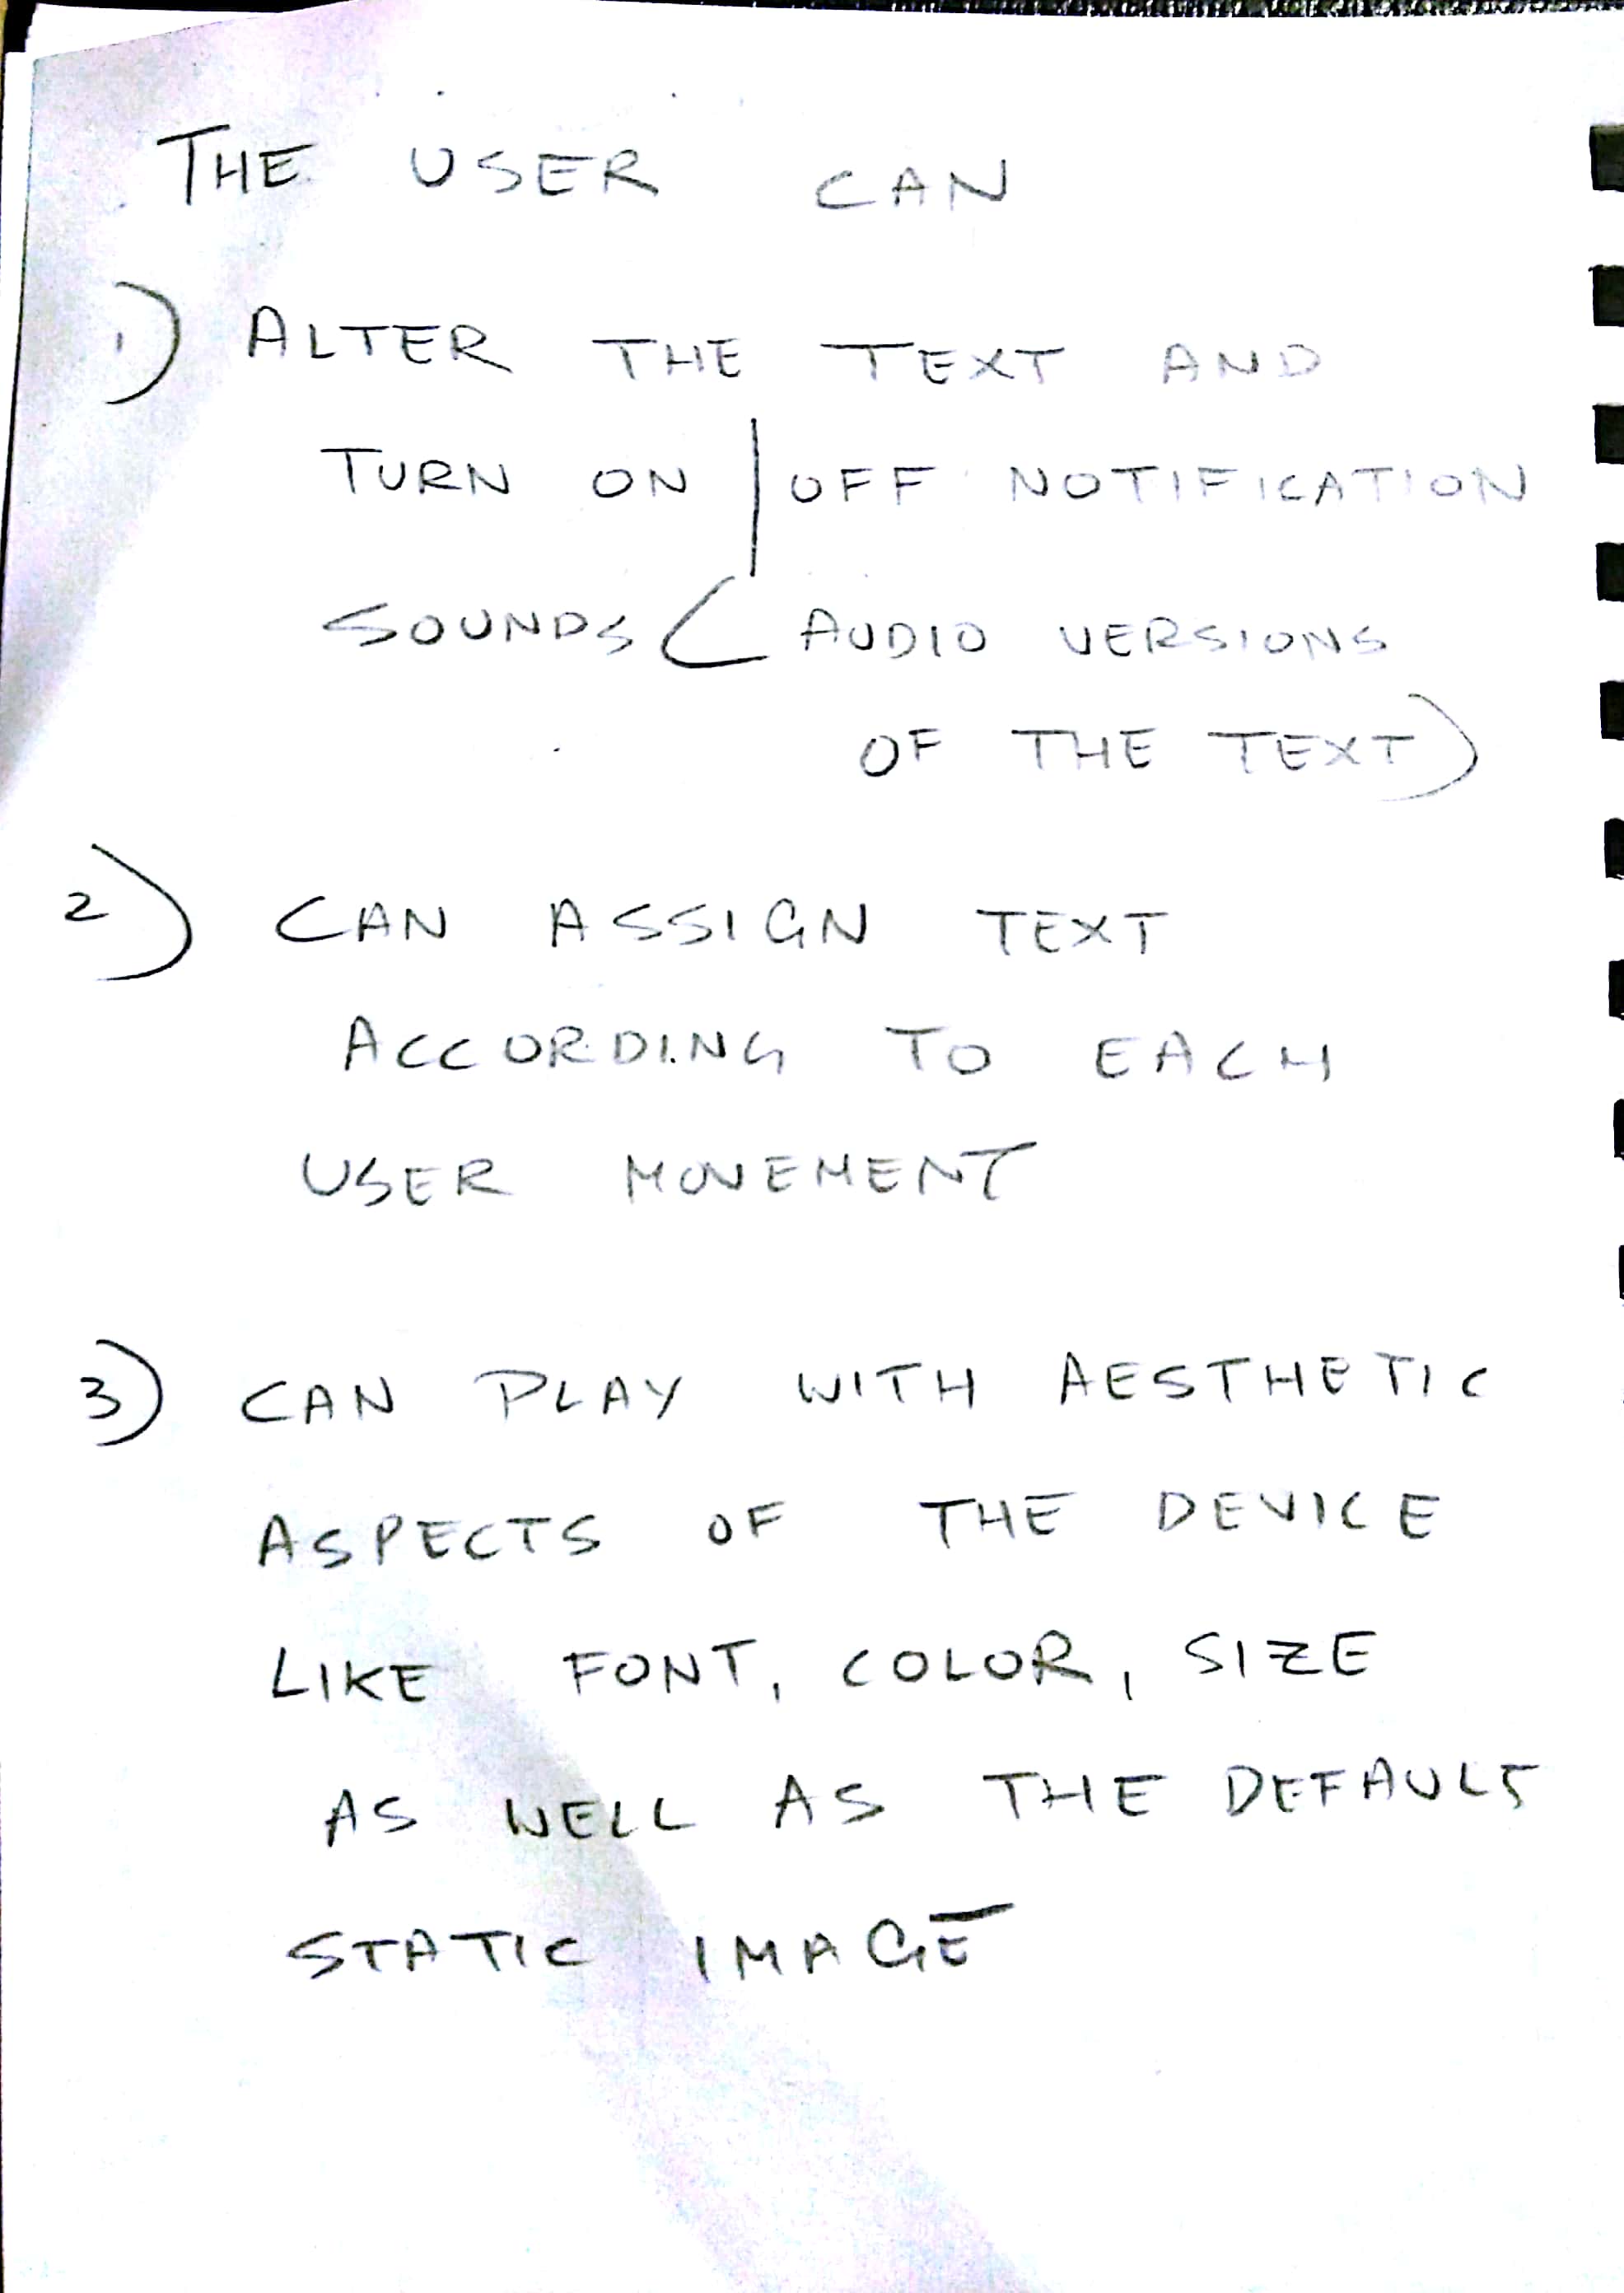 THE USER CAN
1) ALTER THE TEXT AND
TURN ON | OFF NOTIFICATION
SOUNDS ( AUDIO VERSIONS
OF THE TEXT)
2) CAN ASSIGN TEXT
ACCORDING TO EACH
USER MOVEMENT
3) CAN PLAY WITH AESTHETIC
ASPECTS OF THE DEVICE
LIKE FONT, COLOR, SIZE
AS WELL AS THE DEFAULT
STATIC IMAGE